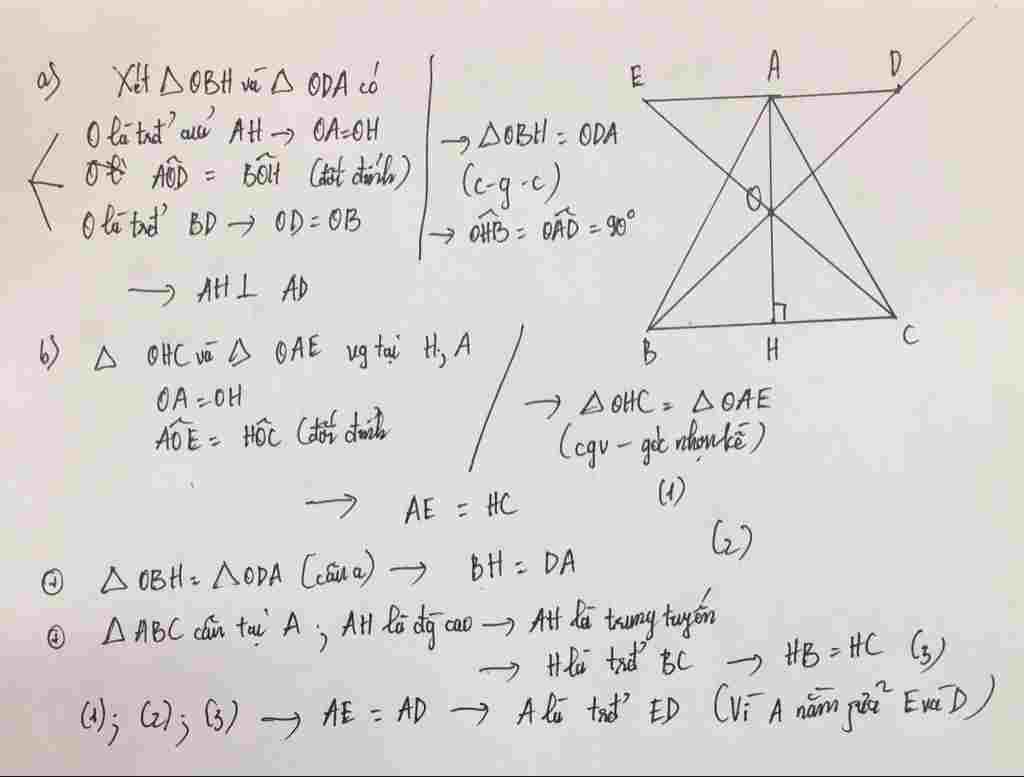 a) Xét △OBH và △ ODA có
O là trđ' của AH → OA=OH
AÔD = BÔH (đđ đỉnh)
O là trđ' BD → OD=OB
→ △OBH = ODA
(c-g-c)
→ OĤB = OÂD = 90°
→ AH⊥ AD
b) △ OHC và △ OAE vg tại H, A
OA=OH
AÔE = HÔC (đối đỉnh
→ △OHC = △OAE
(cgv - góc nhọn kề)
→ AE = HC (1)
△OBH=△ODA (câu a) → BH = DA (2)
△ABC cân tại A ; AH là đg cao → AH là trung tuyến
→ H là trđ' BC → HB=HC (3)
(1); (2); (3) → AE = AD → A là trđ' ED (Vì A nằm giữa 2 E và D)
E A D
O
B H C